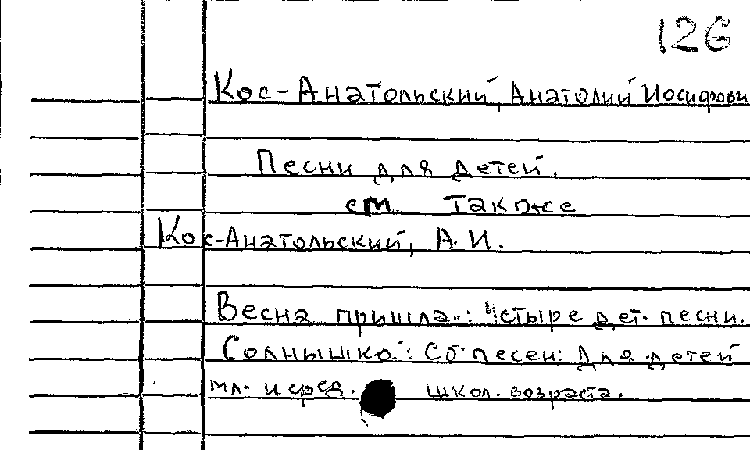 126
Кос-Анатольский, Анатолий Иосифови
Песни для детей.
см также
Кос-Анатольский, А.И.
Весна пришла.: Четыре дет. песни.
Солнышко.: Сб песен: Для детей
мл. и сред. школ. возраста.